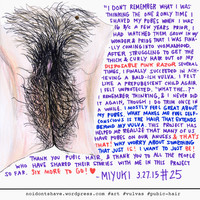 "I DON'T REMEMBER WHAT I WAS
THINKING THE ONE & ONLY TIME I
SHAVED MY PUBES WHEN I WAS
16 B/C A FEW YEARS PRIOR, I
HAD WATCHED THEM GROW IN MY
WONDER & PRIDE THAT I WAS FINA-
LLY COMING INTO WOMANHOOD.
AFTER STRUGGLING TO GET THE
THICK & CURLY HAIR OUT OF MY
DISPOSABLE PINK RAZOR SEVERAL
TIMES, I FINALLY SUCCEEDED IN ACHIE-
VING A BALD-ISH VULVA. I FELT
LIKE A PREPUBESCENT CHILD AGAIN.
I FELT UTTERLY... "WHAT THE...?"
REMEMBER THINKING, & I NEVER DID
IT AGAIN, THOUGH I DO TRIM ONCE IN
A WHILE. I MOSTLY FEEL GREAT ABOUT
MY PUBES. WHAT MAKES ME FEEL SELF-
CONSCIOUS IS THE HAIR THAT EXTENDS
BEYOND MY VULVA. THIS PROJECT HAS
HELPED ME REALIZE THAT MANY OF US
HAVE PUBES ON OUR ANUSES & THAT'S
THAT! WHY SUBVERT SOMETHING
THAT JUST IS! I WANT TO JUST BE!
THANK YOU PUBIC HAIR, & THANK YOU TO ALL THE PEOPLE
WHO HAVE SHARED THEIR STORIES WITH ME IN THIS PROJECT
SO FAR. SIX MORE TO GO! ♥ - MIYUKI 3.27.15 #25
noidontshave.wordpress.com #art #vulvas #pubic-hair